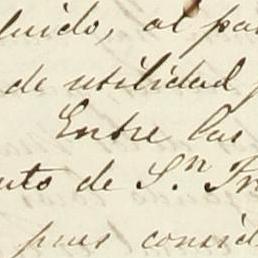 luido, al pa
de utilidad
Entre las
nto de S.n Fr
pues consid